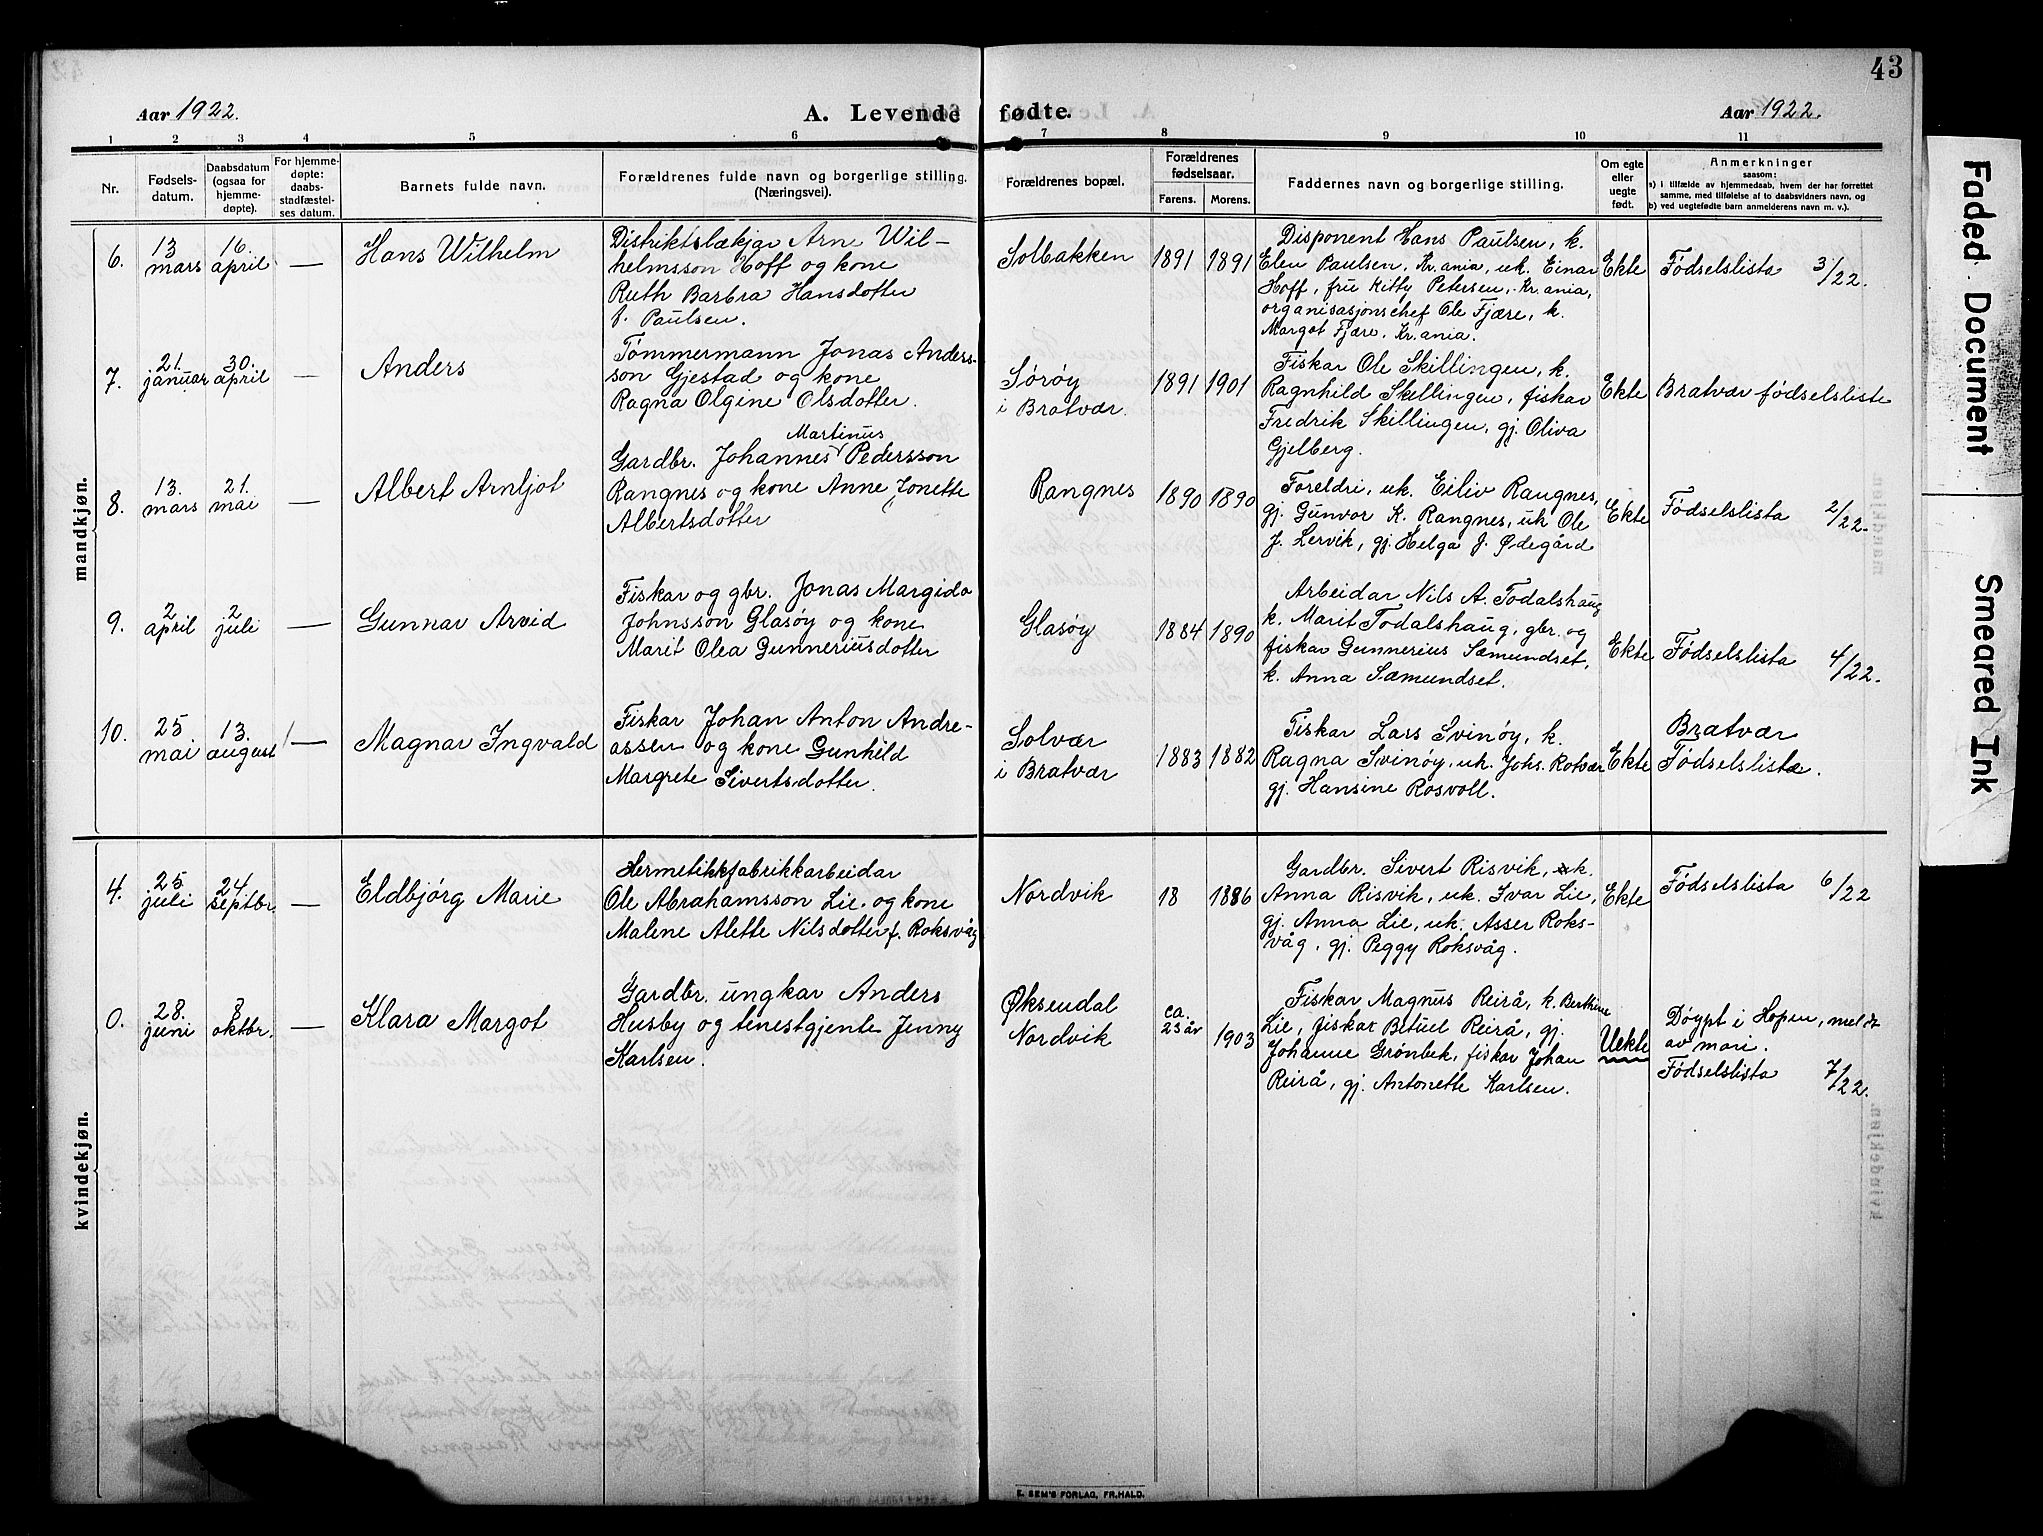 43
Aar 1922.
A. Levende fødte.
Aar 1922.
1 2 3 4 5 6 7 8 9 10 11
Nr.
Fødsels-
datum.
Daabsdatum
(ogsaa for
hjemme-
døpte).
For hjemme-
døpte:
daabs-
stadfæstel-
ses datum.
Barnets fulde navn.
Forældrenes fulde navn og borgerlige stilling.
(Næringsvei).
Forældrenes bopæl.
Forældrenes
fødselsaar.
Farens. Morens.
Faddernes navn og borgerlige stilling.
Om egte
eller
uegte
født.
Anmerkninger
saasom:
a) i tilfælde av hjemmedaab, hvem der har forrettet
samme, med tilføielse af to daabsvidners navn, og
b) ved uegtefødte barn anmelderens navn m. v.).
mandkjøn.
6.
13
mars
16.
april
—
Hans Wilhelm
Distriktslækjar Arne Wil-
helmsson Hoff og kone
Ruth Barbra Hansdotter
f. Paulsen.
Solbakken
1891
1891
Disponent Hans Paulsen, k.
Elen Paulsen, Kr.ania, uk. Einar
Hoff, frü Kitty Petersen, Kr.ania,
organisasjonschef Ole Fjære, k.
Margot Fjære, Kr.ania.
Ekte
Fødselslista 3/22.
7.
21.
januar
30.
april
—
Anders
Tømmermann Jonas Anders-
son Gjestad og kone
Ragna Olgine Olsdotter.
Sørøy
i Bratvær.
1891
1901
Fiskar Ole Skillingen, k.
Ragnhild Skillingen, fiskar
Fredrik Skillingen, gj. Oliva
Gjelberg.
Ekte
Bratvær fødselsliste
8.
13.
mars
21.
mai
—
Albert Arnljot
Martinus
Gardbr. Johannes Pedersson
Rangnes og kone Anne Jonette
Albertsdotter
Rangnes
1890
1890
Foreldri, uk. Eiliv Rangnes,
gj. Gunvor K. Rangnes, uk Ole
J. Lervik, gj. Helga J. Ødegård
Ekte
Fødselslista 2/22.
9.
2
april
2
juli
—
Gunnar Arvid
Fiskar og gbr. Jonas Margido
Johnsson Glasøy og kone
Marit Olea Gunneriusdotter
Glasøy
1884
1890
Arbeidar Nils A. Todalshaug
k. Marit Todalshaug, gbr. og
fiskar Gunnerius Sæmundset,
k. Anna Sæmundset.
Ekte
Fødselslista 4/22.
10.
25
mai
13.
august
—
Magnar Ingvald
Fiskar Johan Anton Andre-
assen og kone Gunhild
Margrete Sivertsdotter.
Solvær
i Bratvær
1883
1882
Fiskar Lars Svinøy, k.
Ragna Svinøy, uk. Johs. Rotvær
gj. Hansine Rosvoll.
Ekte
Bratvær
Fødselsliste.
kvindekjøn.
4.
25
juli
24
septbr.
—
Eldbjørg Marie
Hermetikkfabrikkarbeidar
Ole Abrahamsson Lie og kone
Malene Alette Nilsdotter f. Roksvåg
Nordvik
18
1886
Gardbr. Sivert Risvik, k.
Anna Risvik, uk. Ivar Lie,
gj. Anna Lie, uk. Asser Roks-
våg, gj. Peggy Roksvåg.
Ekte
Fødselslista 6/22
0.
28.
juni
8
oktbr.
—
Klara Margot
Gardbr. ungkar Anders
Husby og tenestgjente Jenny
Karlsen.
Øksendal
Nordvik
ca.
23 år
1903
Fiskar Magnus Reirå, k. Berthine
Lie, fiskar Betuel Reirå, gj.
Johanne Grønbek, fiskar Johan
Reirå, gj. Antonette Karlsen.
Uekte
Døypt i Hopen, meldt
av mori.
Fødselslista 7/22.
E. SEM'S FORLAG, FR.HALD.
Faded Document
Smeared Ink